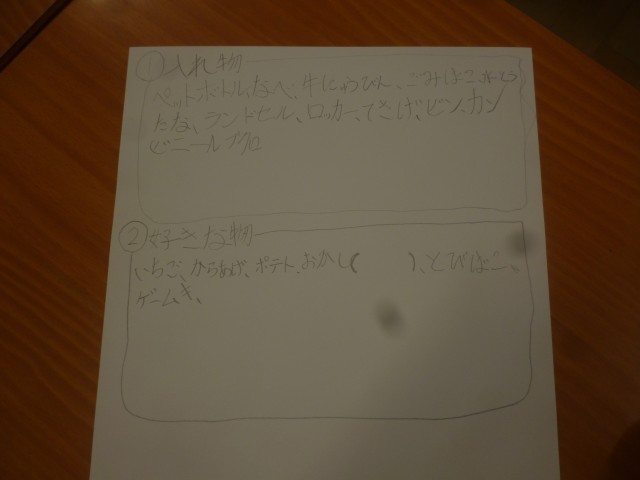 ①入れ物
ペットボトル、なべ、牛にゅうびん、ごみばこ、水とう
たな、ランドセル、ロッカー、てさげ、ビン、カン
ビニールブクロ
②好きな物
いちご、からあげ、ポテト、おかし(　　)、とびばこ、
ゲームき、